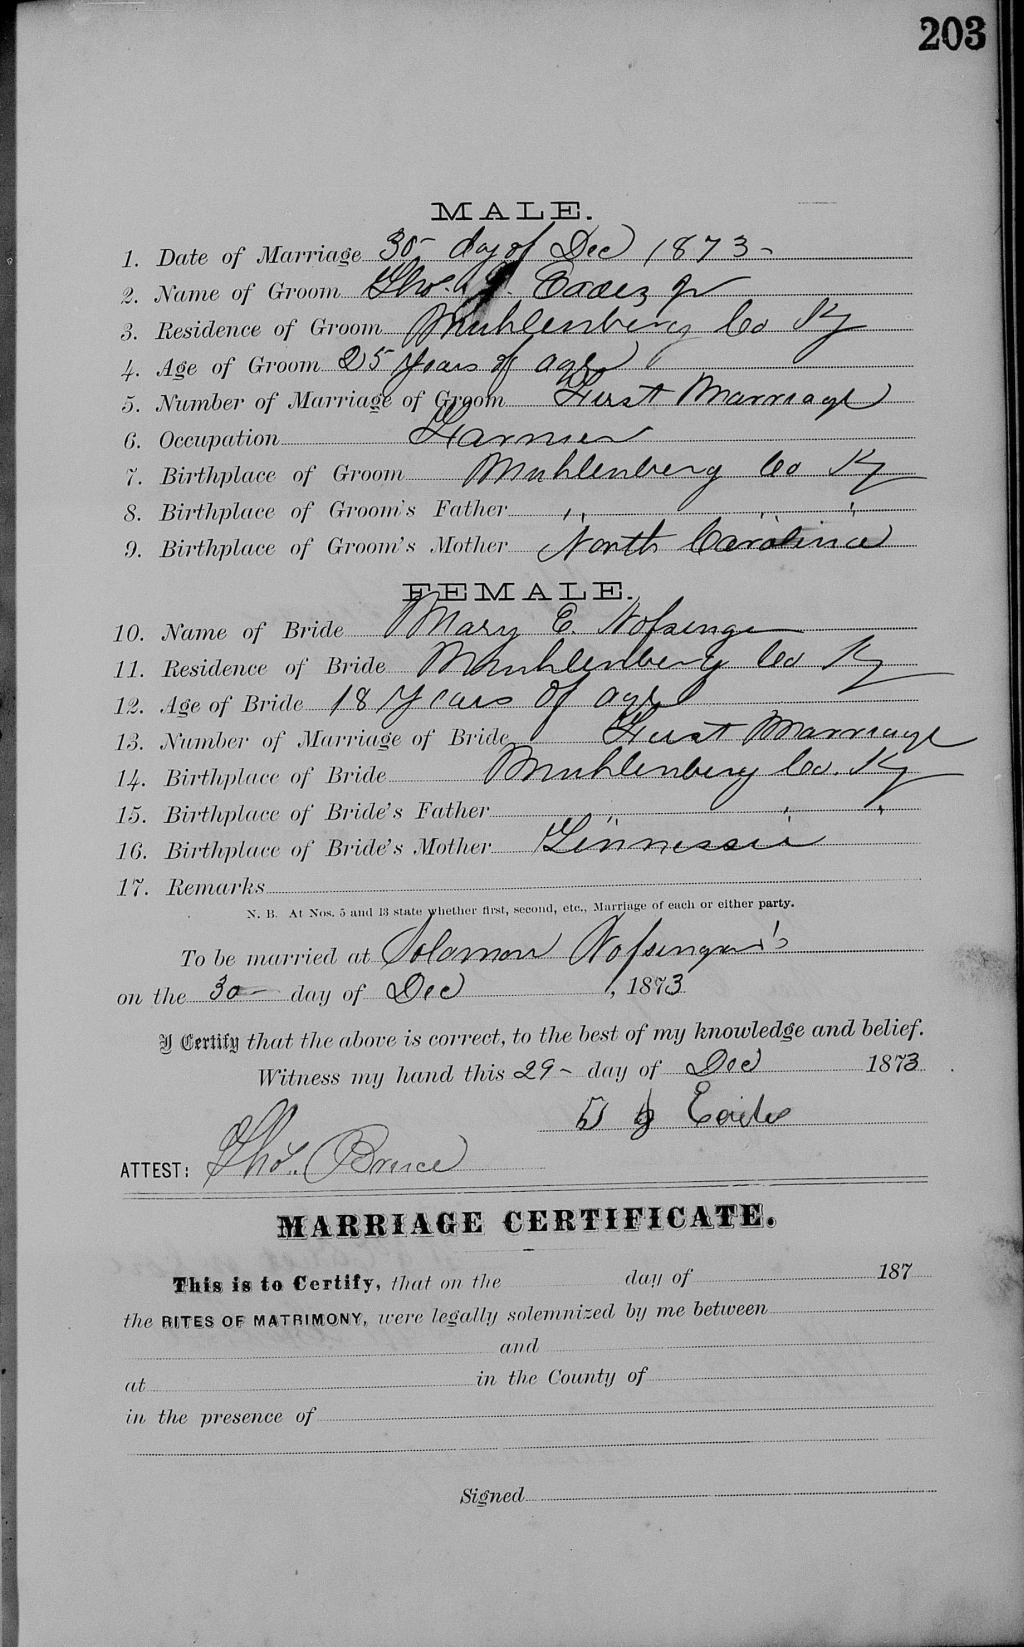 203
MALE.
1. Date of Marriage 30- day of Dec 1873-
2. Name of Groom Thos. J. Eades Jr
3. Residence of Groom Muhlenberg Co Ky
4. Age of Groom 25 Years of age
5. Number of Marriage of Groom First Marriage
6. Occupation Farmer
7. Birthplace of Groom Muhlenberg Co Ky
8. Birthplace of Groom's Father " " "
9. Birthplace of Groom's Mother North Carolina
FEMALE.
10. Name of Bride Mary E. Nofsinger
11. Residence of Bride Muhlenberg Co Ky
12. Age of Bride 18 Years of age
13. Number of Marriage of Bride First Marriage
14. Birthplace of Bride Muhlenberg Co. Ky
15. Birthplace of Bride's Father " " "
16. Birthplace of Bride's Mother Tennessee
17. Remarks
N. B. At Nos. 5 and 13 state whether first, second, etc., Marriage of each or either party.
To be married at Solomon Nofsinger's
on the 30- day of Dec , 1873
I Certify that the above is correct, to the best of my knowledge and belief.
Witness my hand this 29- day of Dec 1873
Eades
ATTEST: Tho. Bruce
MARRIAGE CERTIFICATE.
This is to Certify, that on the day of 187
the RITES OF MATRIMONY, were legally solemnized by me between
and
at in the County of
in the presence of
Signed